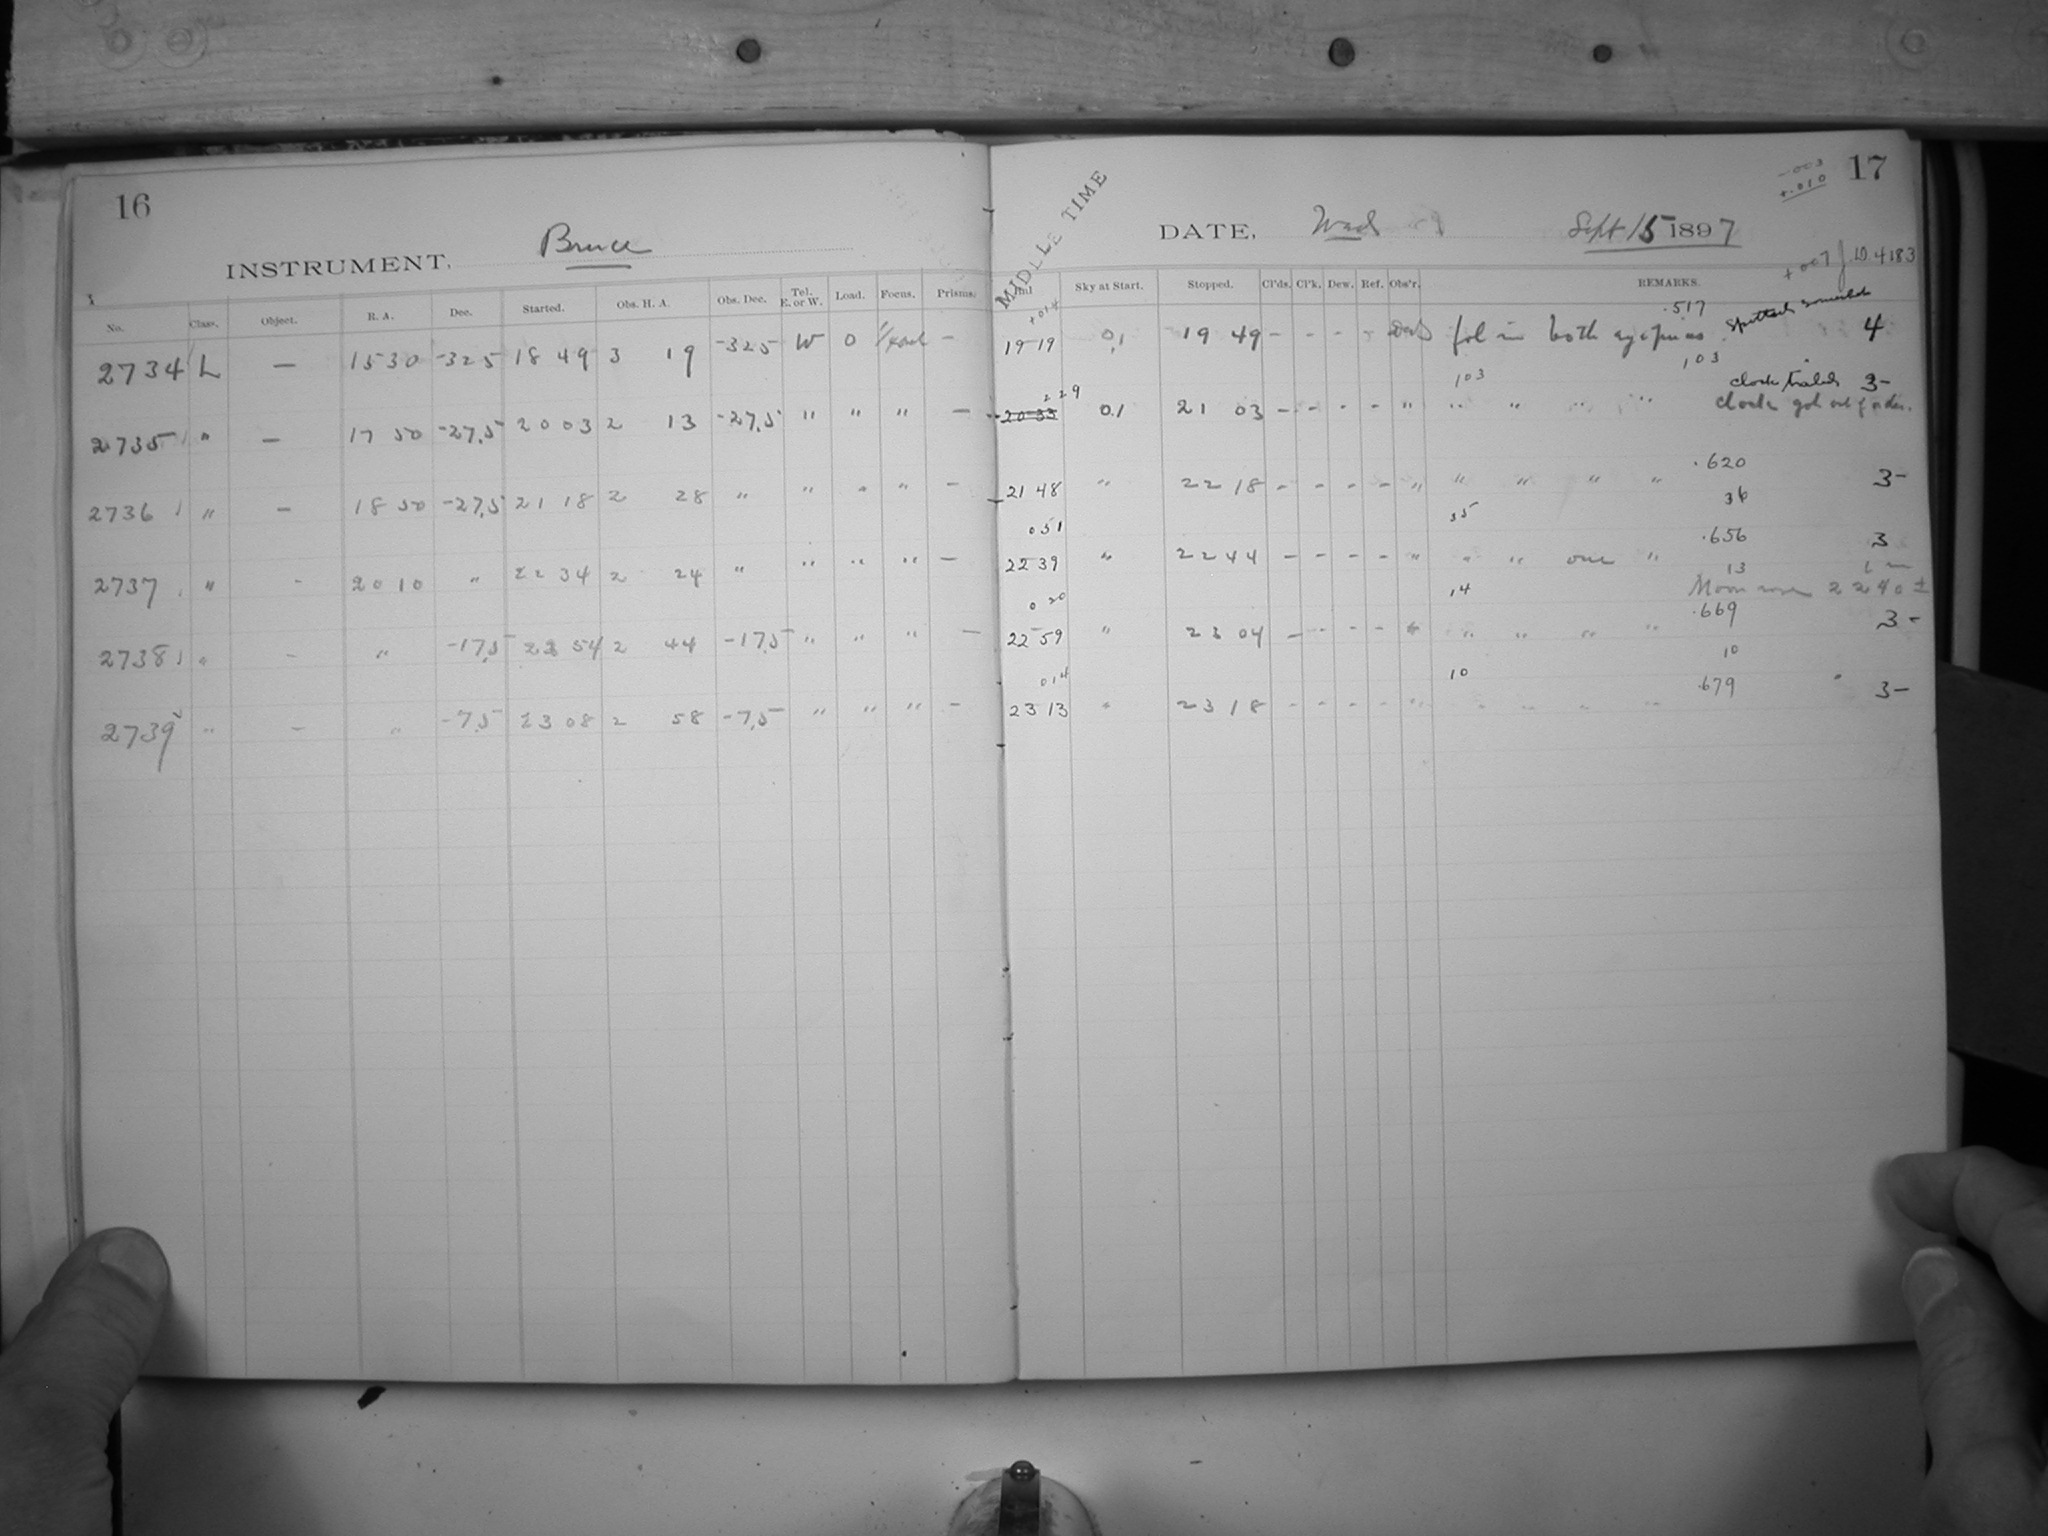 16
INSTRUMENT, Bruce
No. Class. Object. R. A. Dec. Started. Obs. H. A. Obs. Dec. Tel. E. or W. Load. Focus. Prisms.
2734 L — 15 30 -32.5 18 49 3 19 -32.5 W 0 —
2735 " — 17 50 -27.5 20 03 2 13 -27.5 " " " —
2736 " — 18 50 -27.5 21 18 2 28 " " " " —
2737 " - 20 10 " 22 34 2 24 " " " " —
2738 " - " -17.5 22 54 2 44 -17.5 " " " —
2739 " - " -7.5 23 08 2 58 -7.5 " " " —
-.003
+.010
17
MIDDLE TIME
DATE, Wed Sept 15 1897
+007 J.D. 4183
Sky at Start. Stopped. Cl'ds. Cl'k. Dew. Ref. Obs'r. REMARKS.
+014 .517
19 19 0.1 19 49 - - - - fol in both eyepieces spotted somewhat 4
229 103 103
clock trailed 3-
20 33 0.1 21 03 - - - - " " " " " clock got out of order.
.620
21 48 " 22 18 - - - - " " " " " 3-
051 35 36
.656
22 39 " 22 44 - - - - " " " one " 3
13
020 14 Moon rose 22 40 ±
.669
22 59 " 23 04 - - - - " " " " " 3-
014 10 10
.679
23 13 " 23 18 - - - - " " " " " 3-